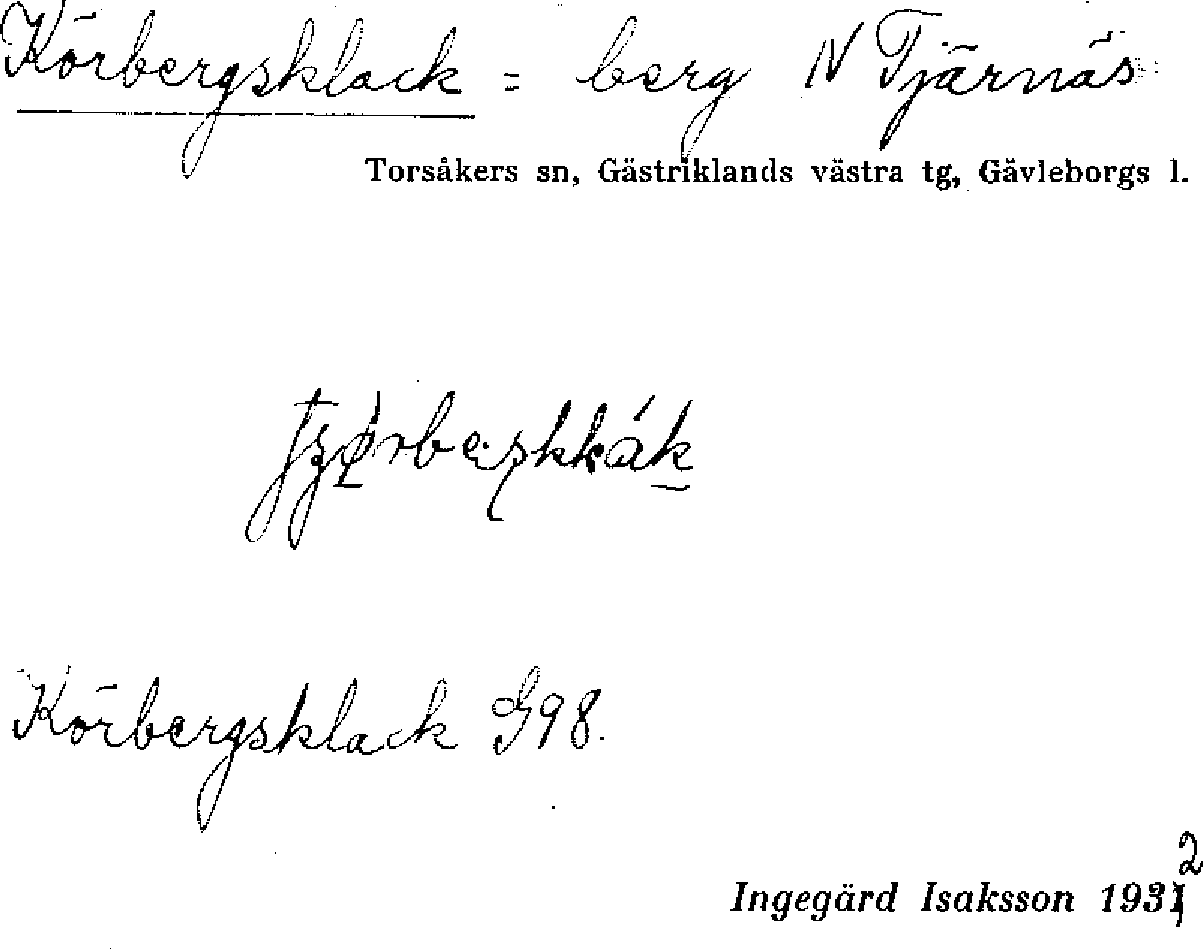 Körbergsklack = berg N Tjärnäs
Torsåkers sn, Gästriklands västra tg, Gävleborgs l.
Körbergsklack G98.
Ingegärd Isaksson 1932